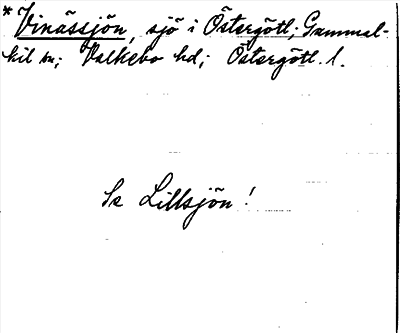 * Vinässjön, sjö i Östergötl; Gammal-
kil sn; Valkebo hd; Östergötl. l.
Se Lillsjön!